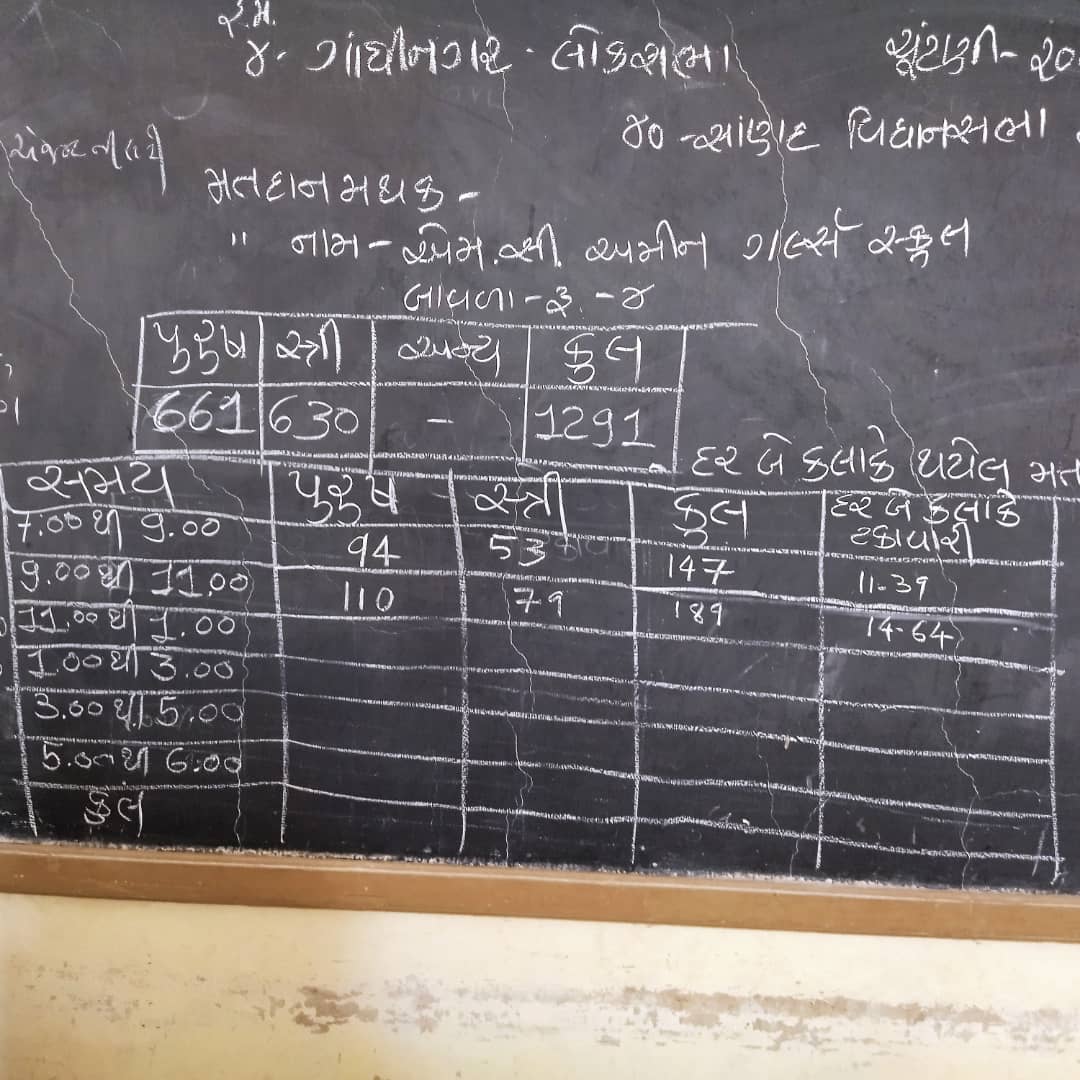 ૬. ગાંધીનગર - લોકસભા ચૂંટણી-૨૦
૪૦ -સાણંદ વિધાનસભા
મતદાન મથક -
" નામ - એમ.સી. અમીન ગર્લ્સ સ્કુલ
બાવળા - રૂ. -૪
પુરુષ સ્ત્રી અન્ય કુલ
661 630 - 1291
દર બે કલાકે થયેલ મત
સમય પુરુષ સ્ત્રી કુલ દર બે કલાકે ટકાવારી
7.00 થી 9.00 94 53 147 11-39
9.00 થી 11.00 110 79 189 14-64
11.00 થી 1.00
1.00 થી 3.00
3.00 થી 5.00
5.00 થી 6.00
કુલ